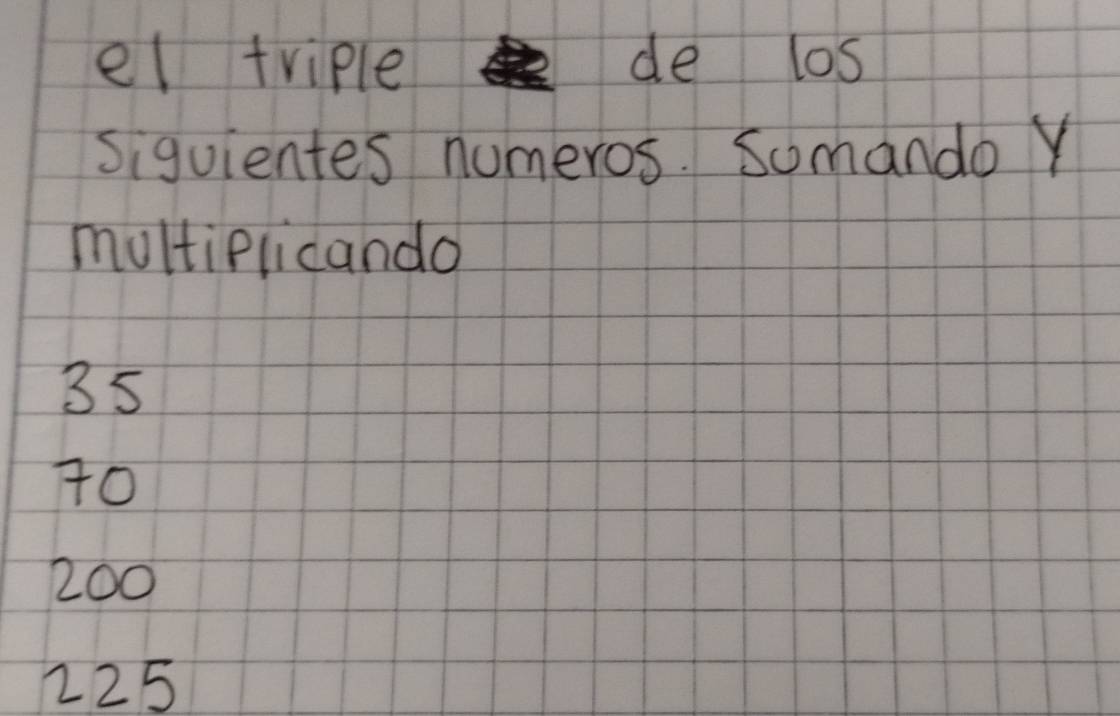 el triple de los
siguientes numeros. Somando Y
multiplicando
35
70
200
225